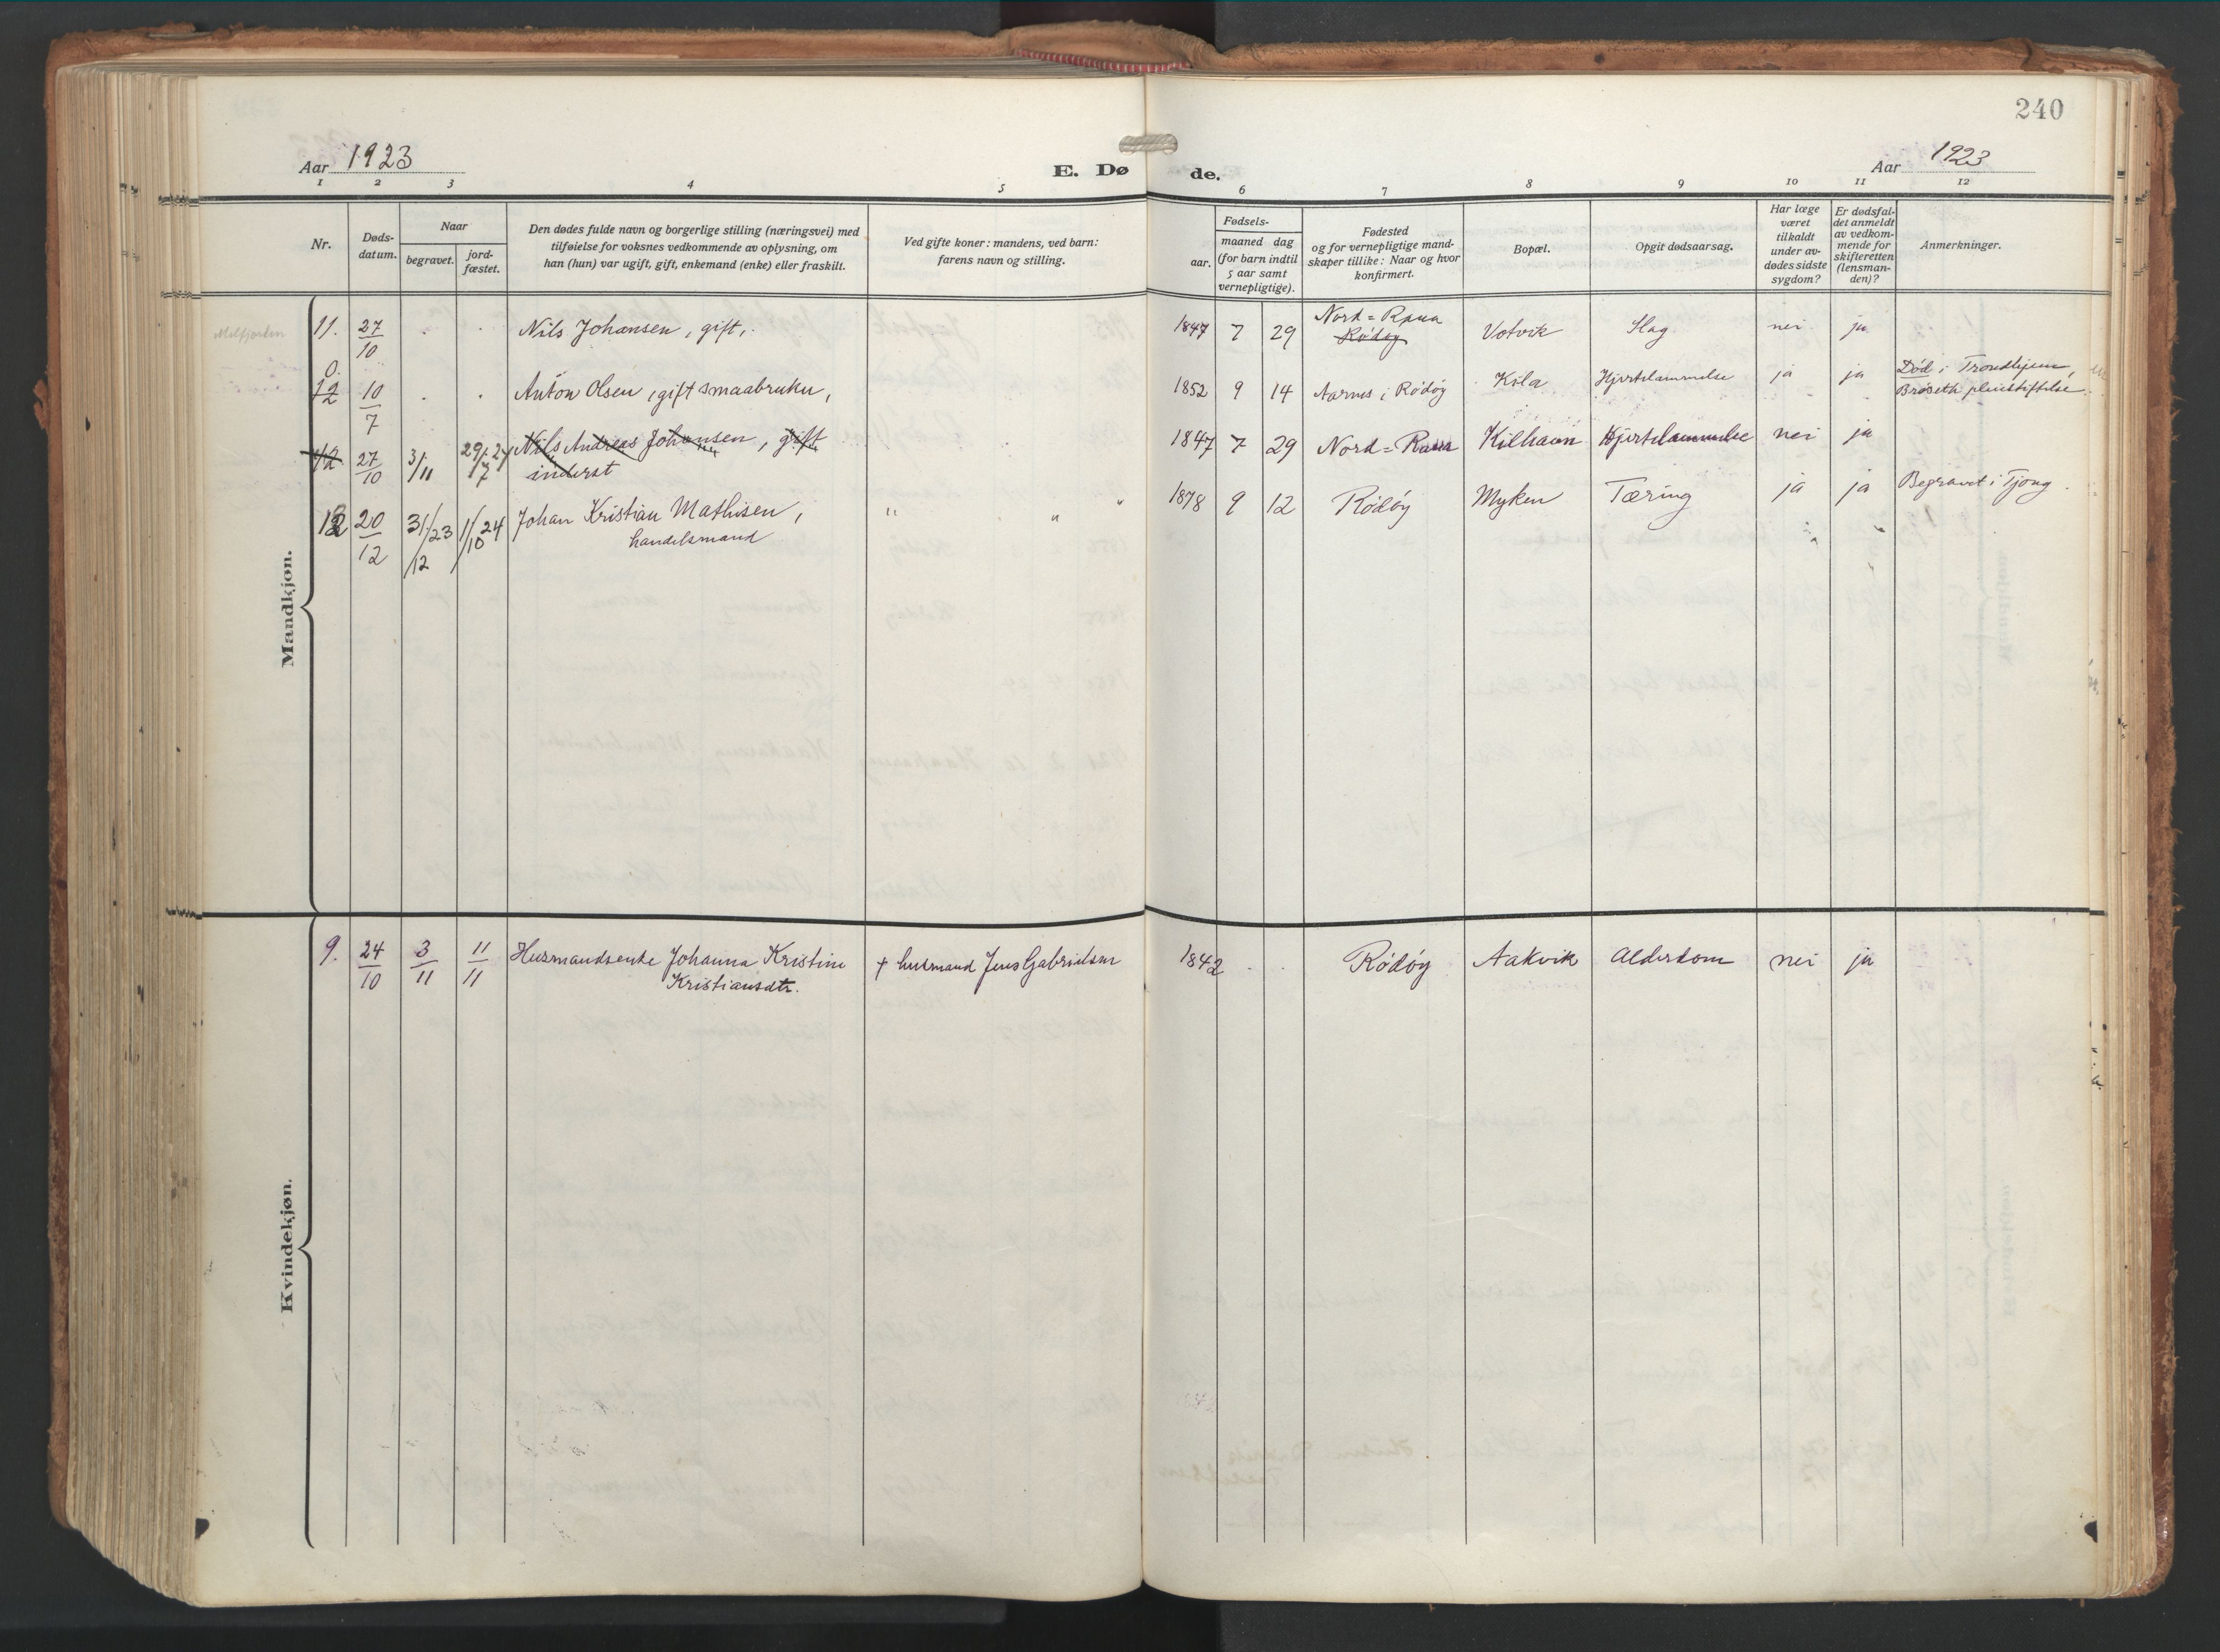 240
Aar 1923
E. Dø
de.
Aar 1923
1 2 3 4 5 6 7 8 9 10 11 12
Nr.
Døds-
datum.
Naar
begravet.
jord-
fæstet.
Den dødes fulde navn og borgerlige stilling (næringsvei) med
tilføielse for voksnes vedkommende av oplysning, om
han (hun) var ugift, gift, enkemand (enke) eller fraskilt.
Ved gifte koner: mandens, ved barn:
farens navn og stilling.
Fødsels-
aar.
maaned dag
(for barn indtil
5 aar samt
vernepligtige).
Fødested
og for vernepligtige mand-
skaper tillike: Naar og hvor
konfirmert.
Bopæl.
Opgit dødsaarsag.
Har læge
været
tilkaldt
under av-
dødes sidste
sygdom?
Er dødsfal-
det anmeldt
av vedkom-
mende for
skifteretten
(lensman-
den)?
Anmerkninger.
Mandkjøn.
Melfjorden
11. 27/10 . . Nils Johansen, gift, 1847 7 29 Nord=Rana Votvik Slag nei ja
Rødøy
0.
12 10/7 . . Anton Olsen, gift smaabruker, 1852 9 14 Aarnes i Rødøy Kila Hjertelammelse ja ja Død i Trondhjem,
Brøseth pleiestiftelse.
12 27/10 3/11 29/7-24 Nils Andreas Johansen, gift 1847 7 29 Nord=Rana Kilhavn Hjertelammelse nei ja
inderst
12 20/12 31/12 23 1/10 24 Johan Kristian Mathisen, " " " 1878 9 12 Rødøy Myken Tæring ja ja Begravet i Tjong.
handelsmand
Kvindekjøn.
9. 24/10 3/11 11/11 Husmandsenke Johanna Kristine + husmand Jens Gabrielsen 1842 . . Rødøy Aakvik Alderdom nei ja
Kristiansdtr.